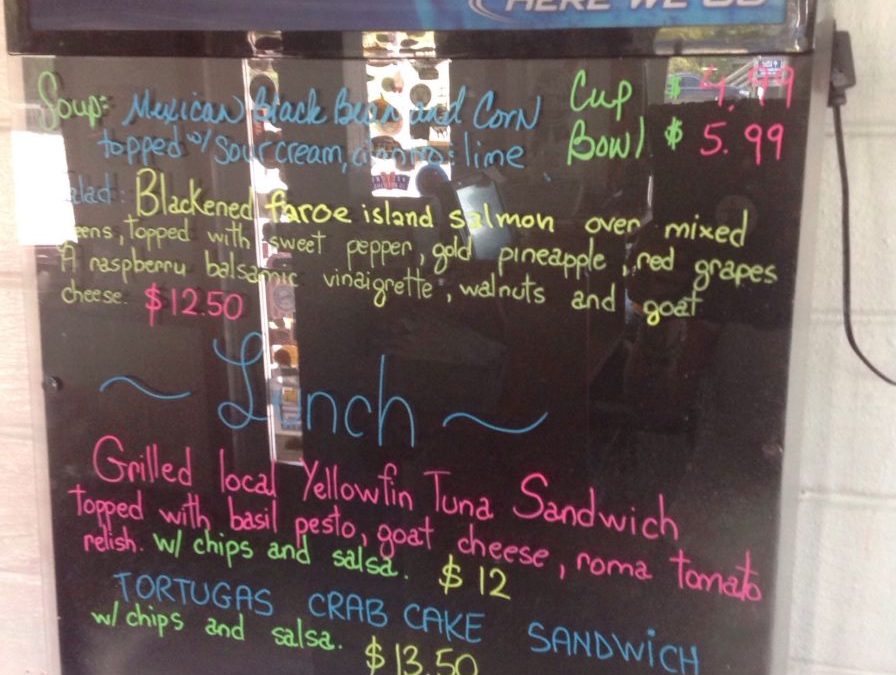 HERE WE GO
Soup: Mexican Black Bean and Corn Cup $ 4.99
topped w/ Sour cream, cilantro lime Bowl $ 5.99
Salad: Blackened faroe island salmon over mixed
greens, topped with sweet pepper, gold pineapple, red grapes
A raspberry balsamic vinaigrette, walnuts and goat
cheese. $12.50
~ Lunch ~
Grilled local Yellowfin Tuna Sandwich
topped with basil pesto, goat cheese, roma tomato
relish. w/ chips and salsa. $12
TORTUGAS CRAB CAKE SANDWICH
w/ chips and salsa. $13.50